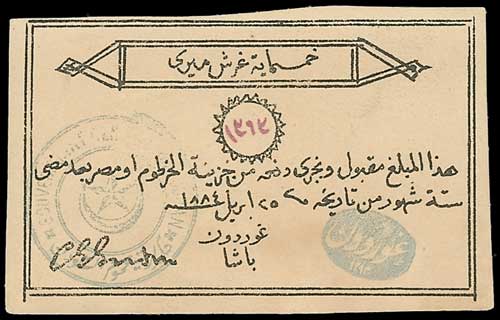 خمسماية غرش ميرى
١٣٦٣
هذا المبلغ مقبول ونجرى دفعه من خزينة الخرطوم او مصر بعد مضى
ستة شهور من تاريخه ٢٥ ابريل ١٨٨٤
غوردون
باشا